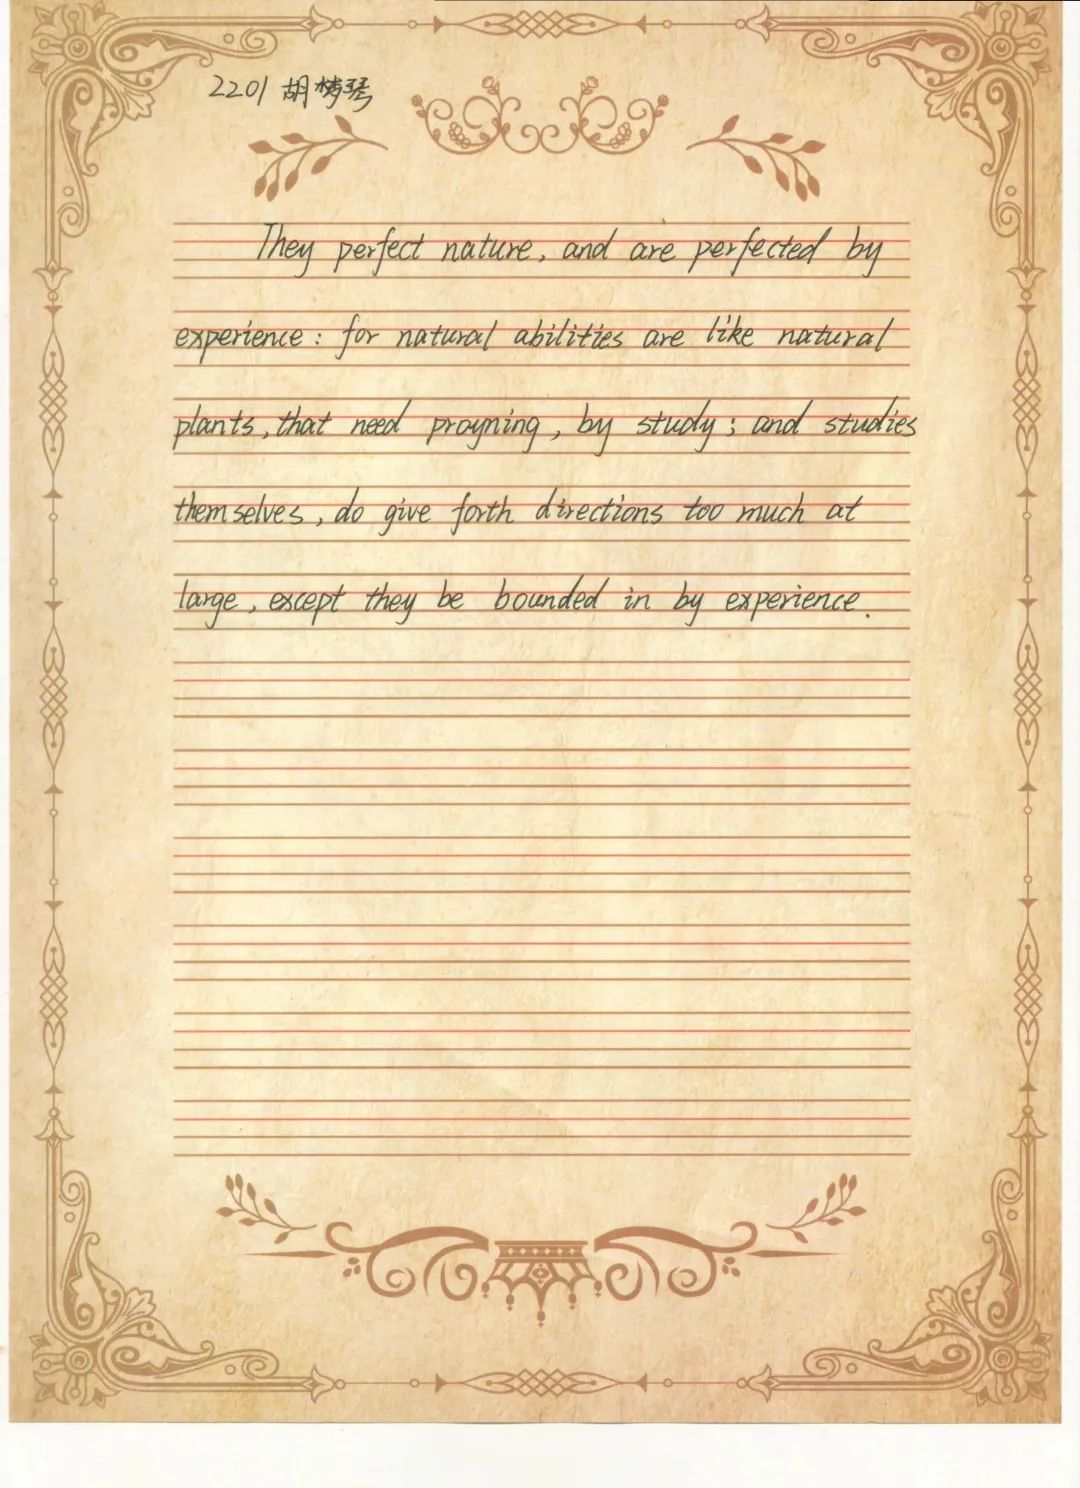 2201 胡梦琴
They perfect nature, and are perfected by
experience: for natural abilities are like natural
plants, that need proyning, by study; and studies
themselves, do give forth directions too much at
large, except they be bounded in by experience.